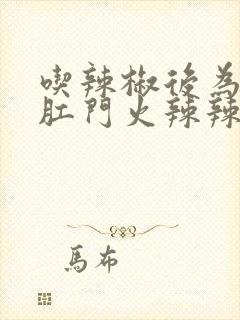 喫辣椒後為
肛門火辣辣
馬布